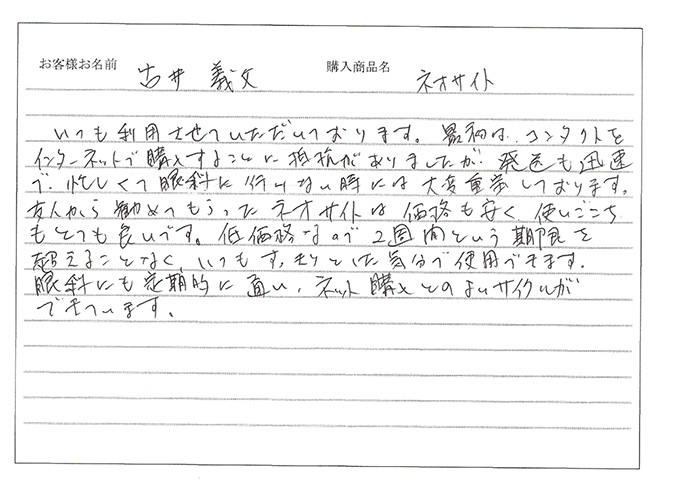 お客様お名前 古井 義文 購入商品名 ネオサイト
いつも利用させていただいております。最初は、コンタクトを
インターネットで購入することに抵抗がありましたが、発送も迅速
で、忙しくて眼科に行けない時には大変重宝しております。
友人から勧めてもらったネオサイトは価格も安く、使いごこち
もとても良いです。低価格なので2週間という期限を
超えることなく、いつもすっきりとした気分で使用できます。
眼科にも定期的に通い、ネット購入とのよいサイクルが
できています。